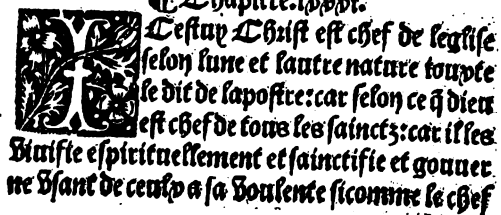 Chapitre.lxxxi.
ICestuy Christ est chef de leglise
selon lune et lautre nature ioupte
le dit de lapostre:car selon ce q̄ dieu
est chef de tous les sainctz:car il les
Viuifie espirituellement et sainctifie et gouuer
ne Vsant de ceulx a sa Voulente sicomme le chef